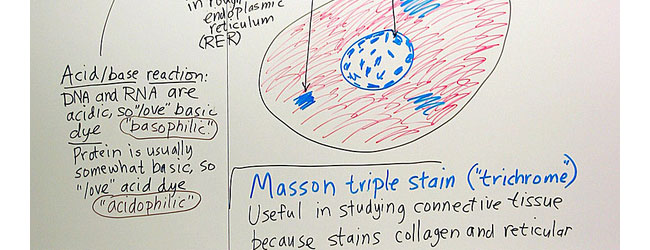 in rough
endoplasmic
reticulum
(RER)
Acid/base reaction:
DNA and RNA are
acidic, so "love" basic
dye "basophilic"
Protein is usually
somewhat basic, so
"love" acid dye
"acidophilic"
Masson triple stain ("trichrome")
Useful in studying connective tissue
because stains collagen and reticular